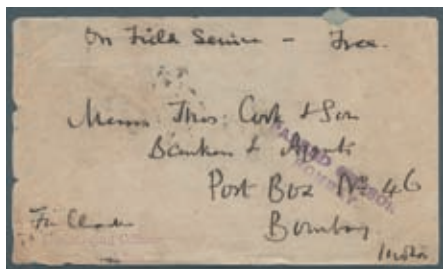 On Field Service - Free.
Messrs Thos: Cook & Son
Bankers & Agents
Post Box No 46
Bombay
India
PASSED CENSOR
BOMBAY